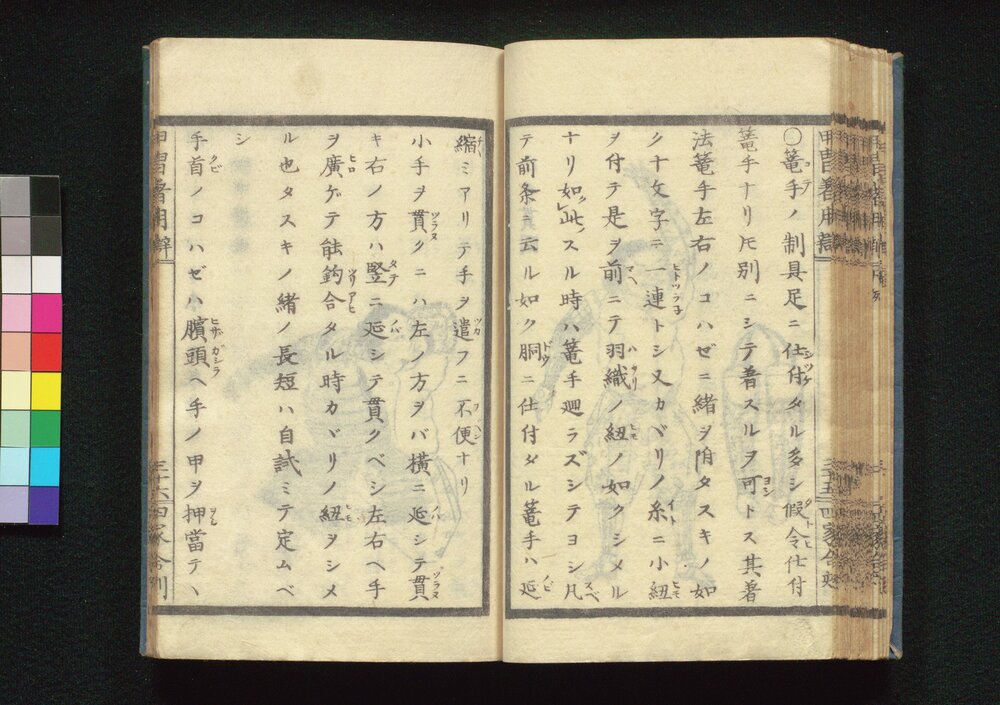 〇篭手ノ制具足ニ仕付タル多シ假令仕付
篭手ナリ𪜈別ニシテ着スルヲ可トス其着
法篭手左右ノコハゼニ緒ヲ附タスキノ如
ク十文字ニ一連トシ又カヾリノ糸ニ小紐
ヲ付テ是ヲ前ニテ羽織ノ紐ノ如クシメル
ナリ如此スル時ハ篭手廻ラズシテヨシ凡
テ前条ニ云ル如ク胴ニ仕付タル篭手ハ延
縮ミアリテ手ヲ遣フニ不便ナリ
小手ヲ貫クニハ左ノ方ヲバ横ニ延シテ貫
キ右ノ方ハ竪ニ延シテ貫クベシ左右ヘ手
ヲ廣ゲテ能鈎合タル時カヾリノ紐ヲシメ
ル也タスキノ緒ノ長短ハ自試ミテ定ムベ
シ
手首ノコハゼハ臏頭ヘ手ノ甲ヲ押當テヽ
甲冑着用辨
三十六
四家合刻